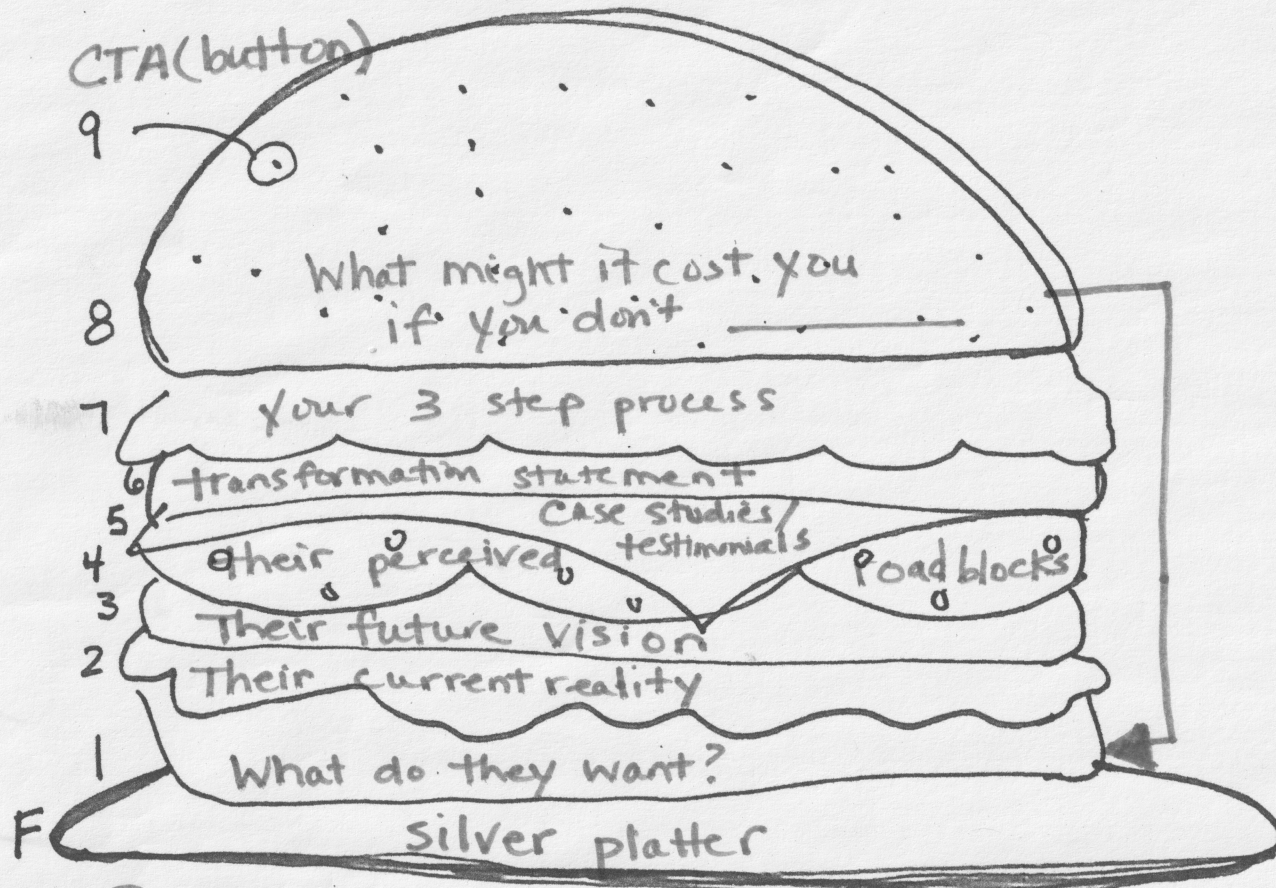 CTA (button)
9
What might it cost you
8 if you don't ________
7 Your 3 step process
6 transformation statement
5 Case studies/
testimonials
4 their perceived roadblocks
3 Their future vision
2 Their current reality
1 What do they want?
F silver platter